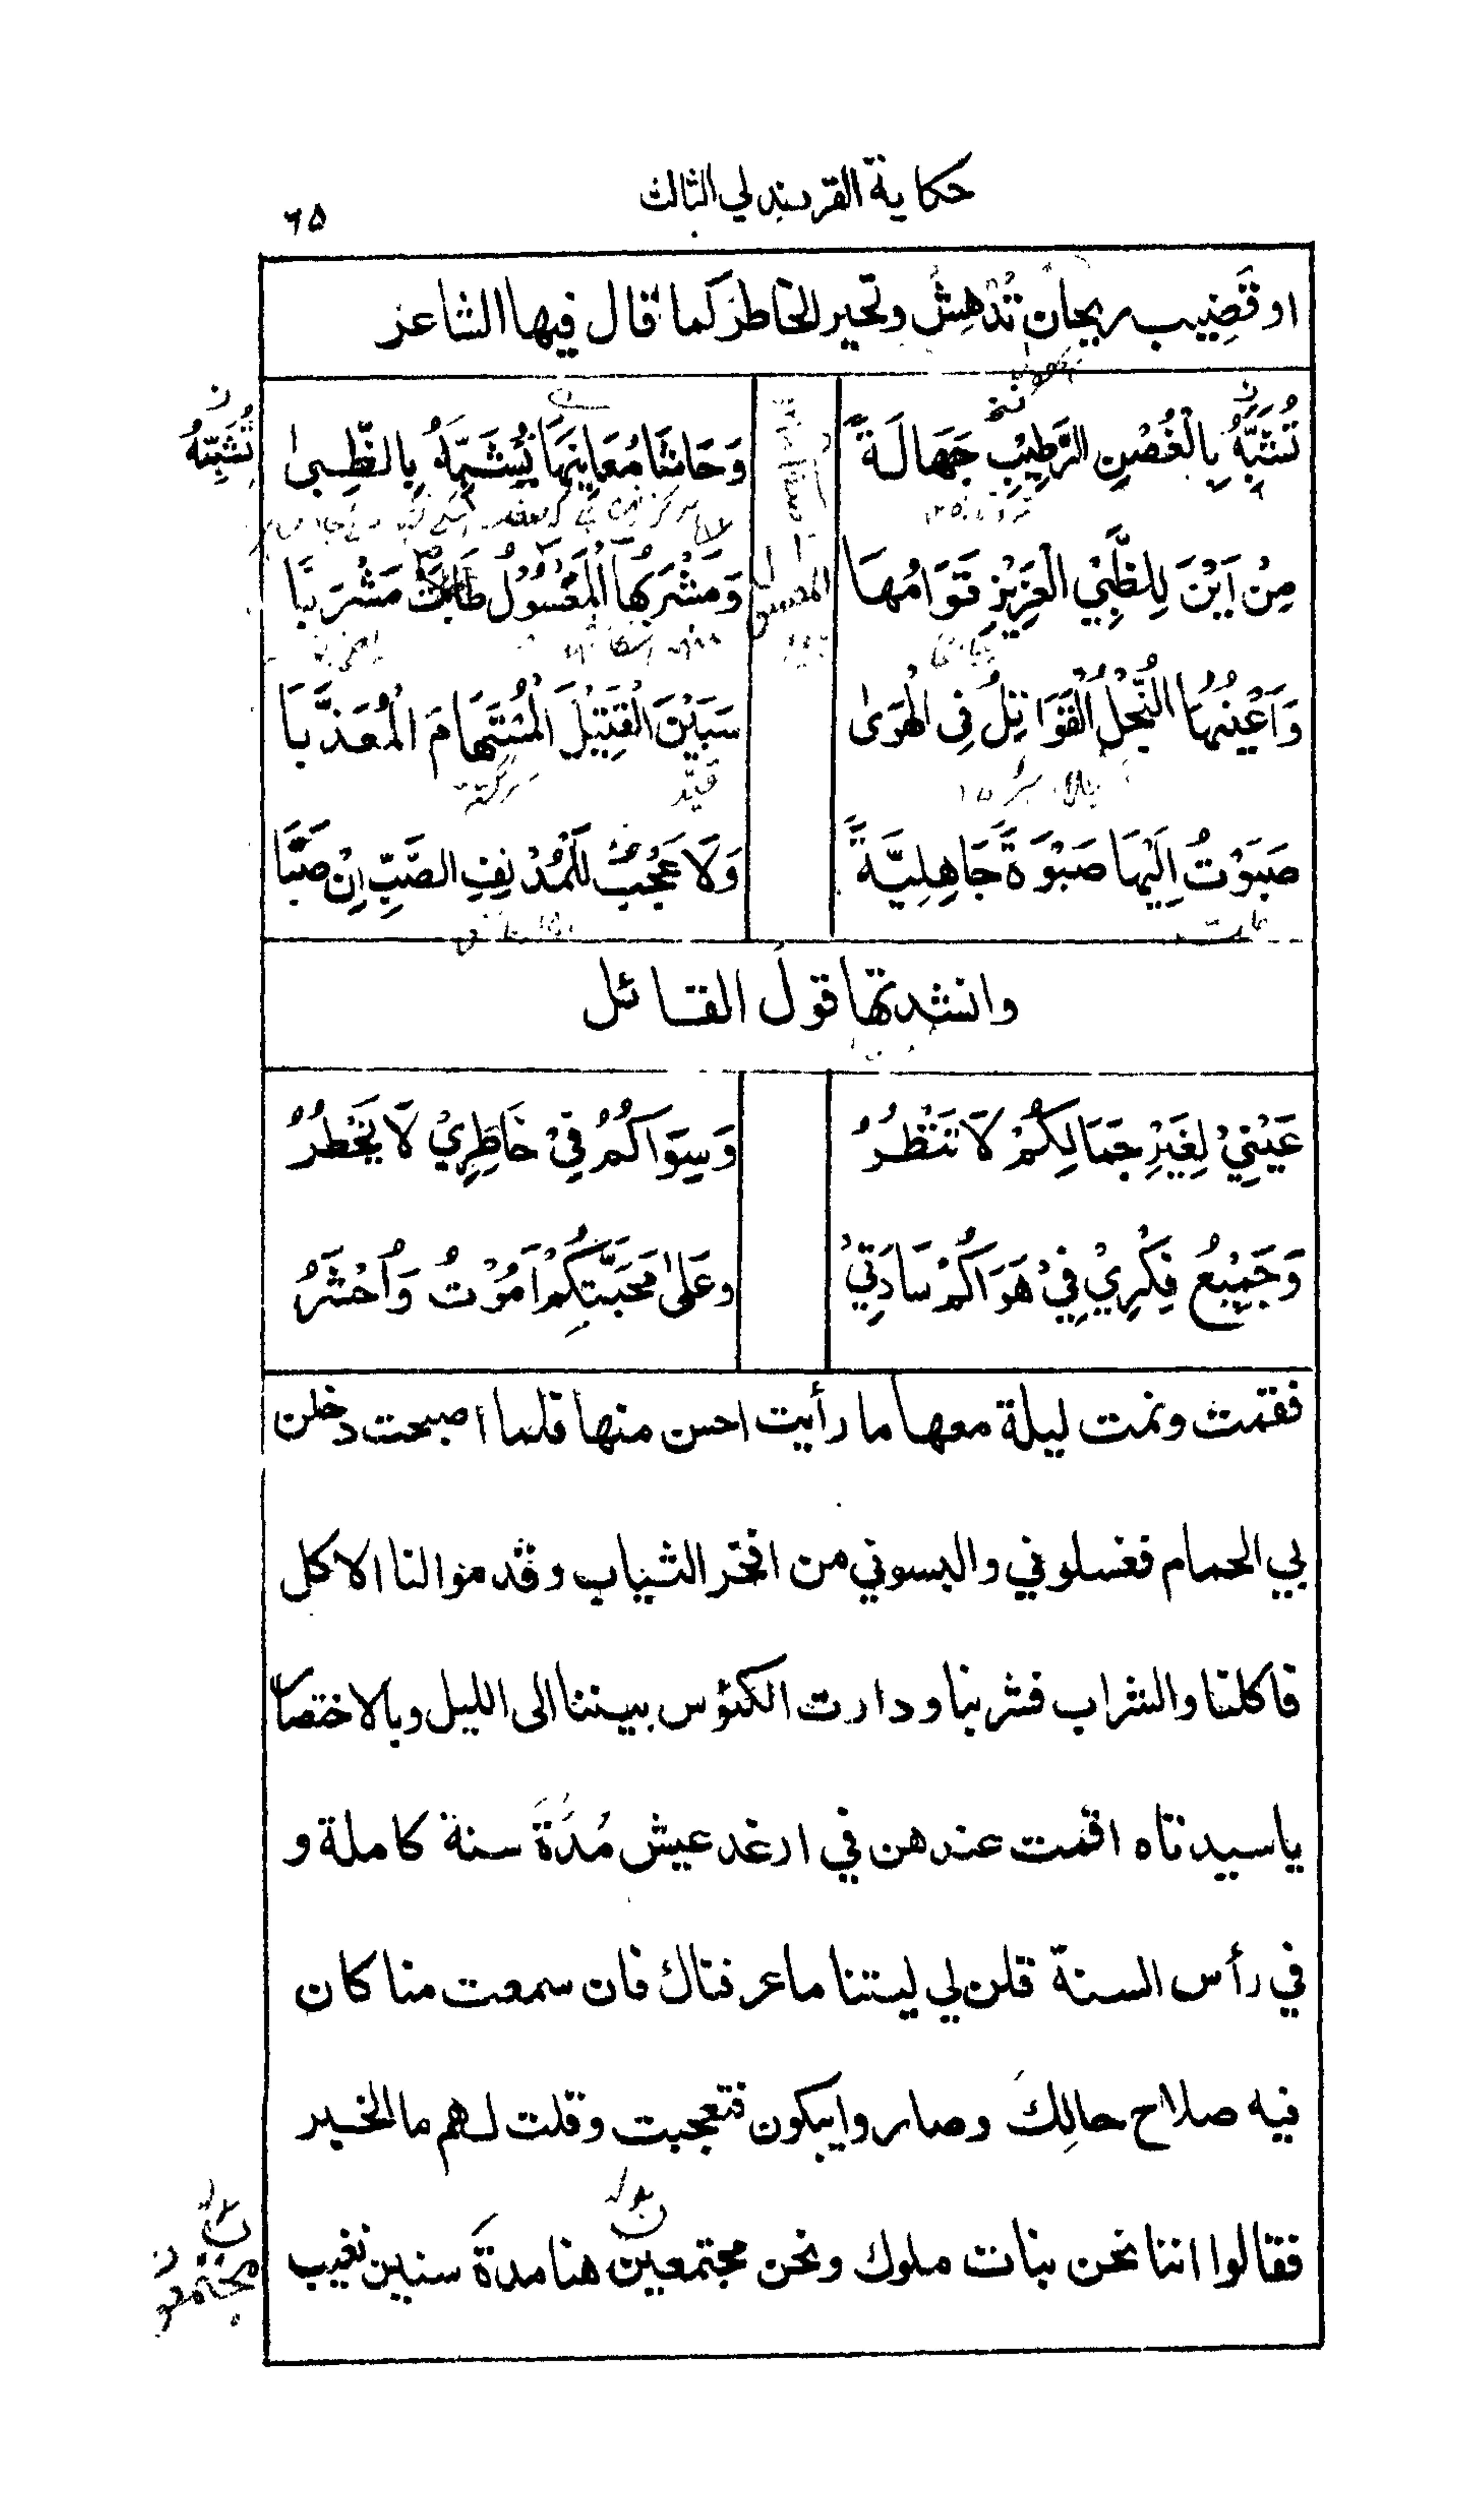 حكاية القرندلي الثالث
٦٥
او قَضِيب ريحان تُدْهِشُ وتحير الخاطر كما قال فيها الشاعر
تُشَبِّهُ بِالْغُصْنِ الرَّطِيْبِ جَهَالَةً وَحَاشَا مَعَانِيْهَا يُشَبَّهُ بِالظِّبىٰ
تُشَبِّهُ
مِنْ اَيْنَ لِلظَّبْيِ الْعَزِيْزِ قَوَامُهَا وَمَشْرَبُهَا الْمَعْسُوْلُ مَشْرَبَا
وَاَعْيُنُهَا النُّجْلُ الْقَوَاتِلُ فِى الْهَوىٰ سَبَيْنَ الْقَتِيْلَ الْمُسْتَهَامَ الْمُعَذَّبَا
صَبَوْتُ اِلَيْهَا صَبْوَةً جَاهِلِيَّةً وَلَا عَجَبٌ لِلْمُدْنِفِ الصَّبِّ اِنْ صَبَا
وانشدتها قول القائل
عَيْنِيْ لِغَيْرِ جَمَالِكُمْ لَا تَنْظُرُ وَسِوَاكُمُ فِيْ خَاطِرِيْ لَا يَخْطُرُ
وَجَمِيْعُ فِكْرِيْ فِيْ هَوَاكُمْ سَادَتِيْ وعَلىٰ مَحَبَّتِكُمْ اَمُوْتُ وَاُحْشَرُ
فقمت ونمت ليلة معها ما رأيت احسن منها فلما اصبحت دخلن
بي الحمام فغسلوني والبسوني من افخر الثياب وقدموا لنا الاكل
فاكلنا والشراب فشربنا ودارت الكئوس بيننا الى الليل وبالاختصار
ياسيدتاه اقمت عندهن في ارغد عيش مُدَةَ سنة كاملة و
في رأس السنة قلن لي ليتنا ما عرفناك فان سمعت منا كان
فيه صلاح حالِكَ وصاروا يبكون فتعجبت وقلت لهم ما الخبر
فقالوا اننا نحن بنات ملوك ونحن مجتمعين هنا مدةَ سنين نغيب